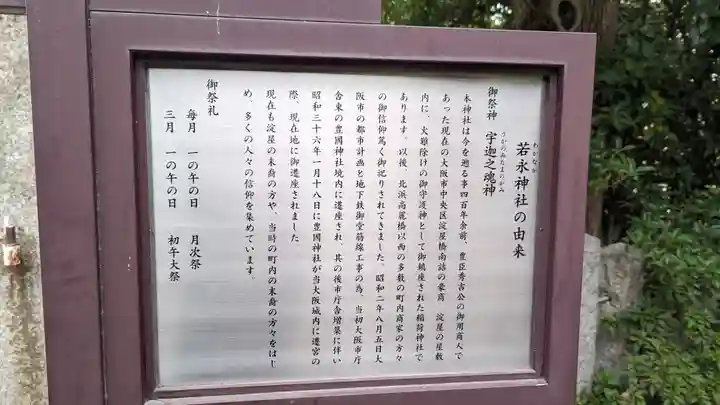 わかなが
若永神社の由来
御祭神　宇迦之魂神
うかのみたまのかみ
本神社は今を遡る事四百年余前、豊臣秀吉公の御用商人で
あった現在の大阪市中央区淀屋橋南詰の豪商　淀屋の屋敷
内に、火難除けの御守護神として御鎮座された稲荷神社で
あります。以後、北浜高麗橋以西の多数の町内商家の方々
の御信仰篤く御祀りされてきました。昭和二年八月五日大
阪市の都市計画と地下鉄御堂筋線工事の為、当初大阪市庁
舎東の豊國神社境内に遷座され、其の後市庁舎増築に伴い
昭和三十六年一月十八日に豊國神社が当大阪城内に遷宮の
際、現在地に御遷座されました
現在も淀屋の末裔の方や、当時の町内の末裔の方々をはじ
め、多くの人々の信仰を集めています。
御祭礼
毎月　一の午の日　月次祭
三月　一の午の日　初午大祭